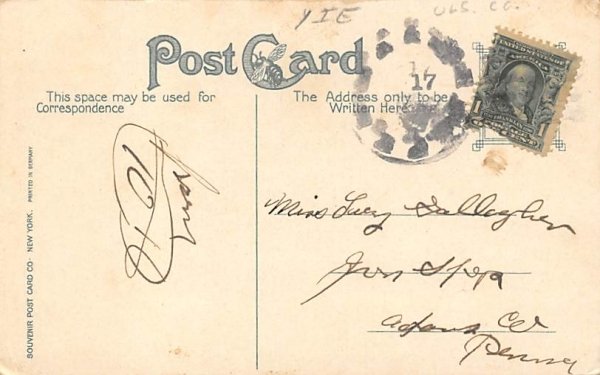 YIE
Post Card
This space may be used for
Correspondence
The Address only to be
Written Here
17
UNITED STATES OF AMERICA
1 1
SOUVENIR POST CARD CO· NEW YORK. PRINTED IN GERMANY
Miss Lucy Gallagher
Iron Spgs
Adams Co
Penna